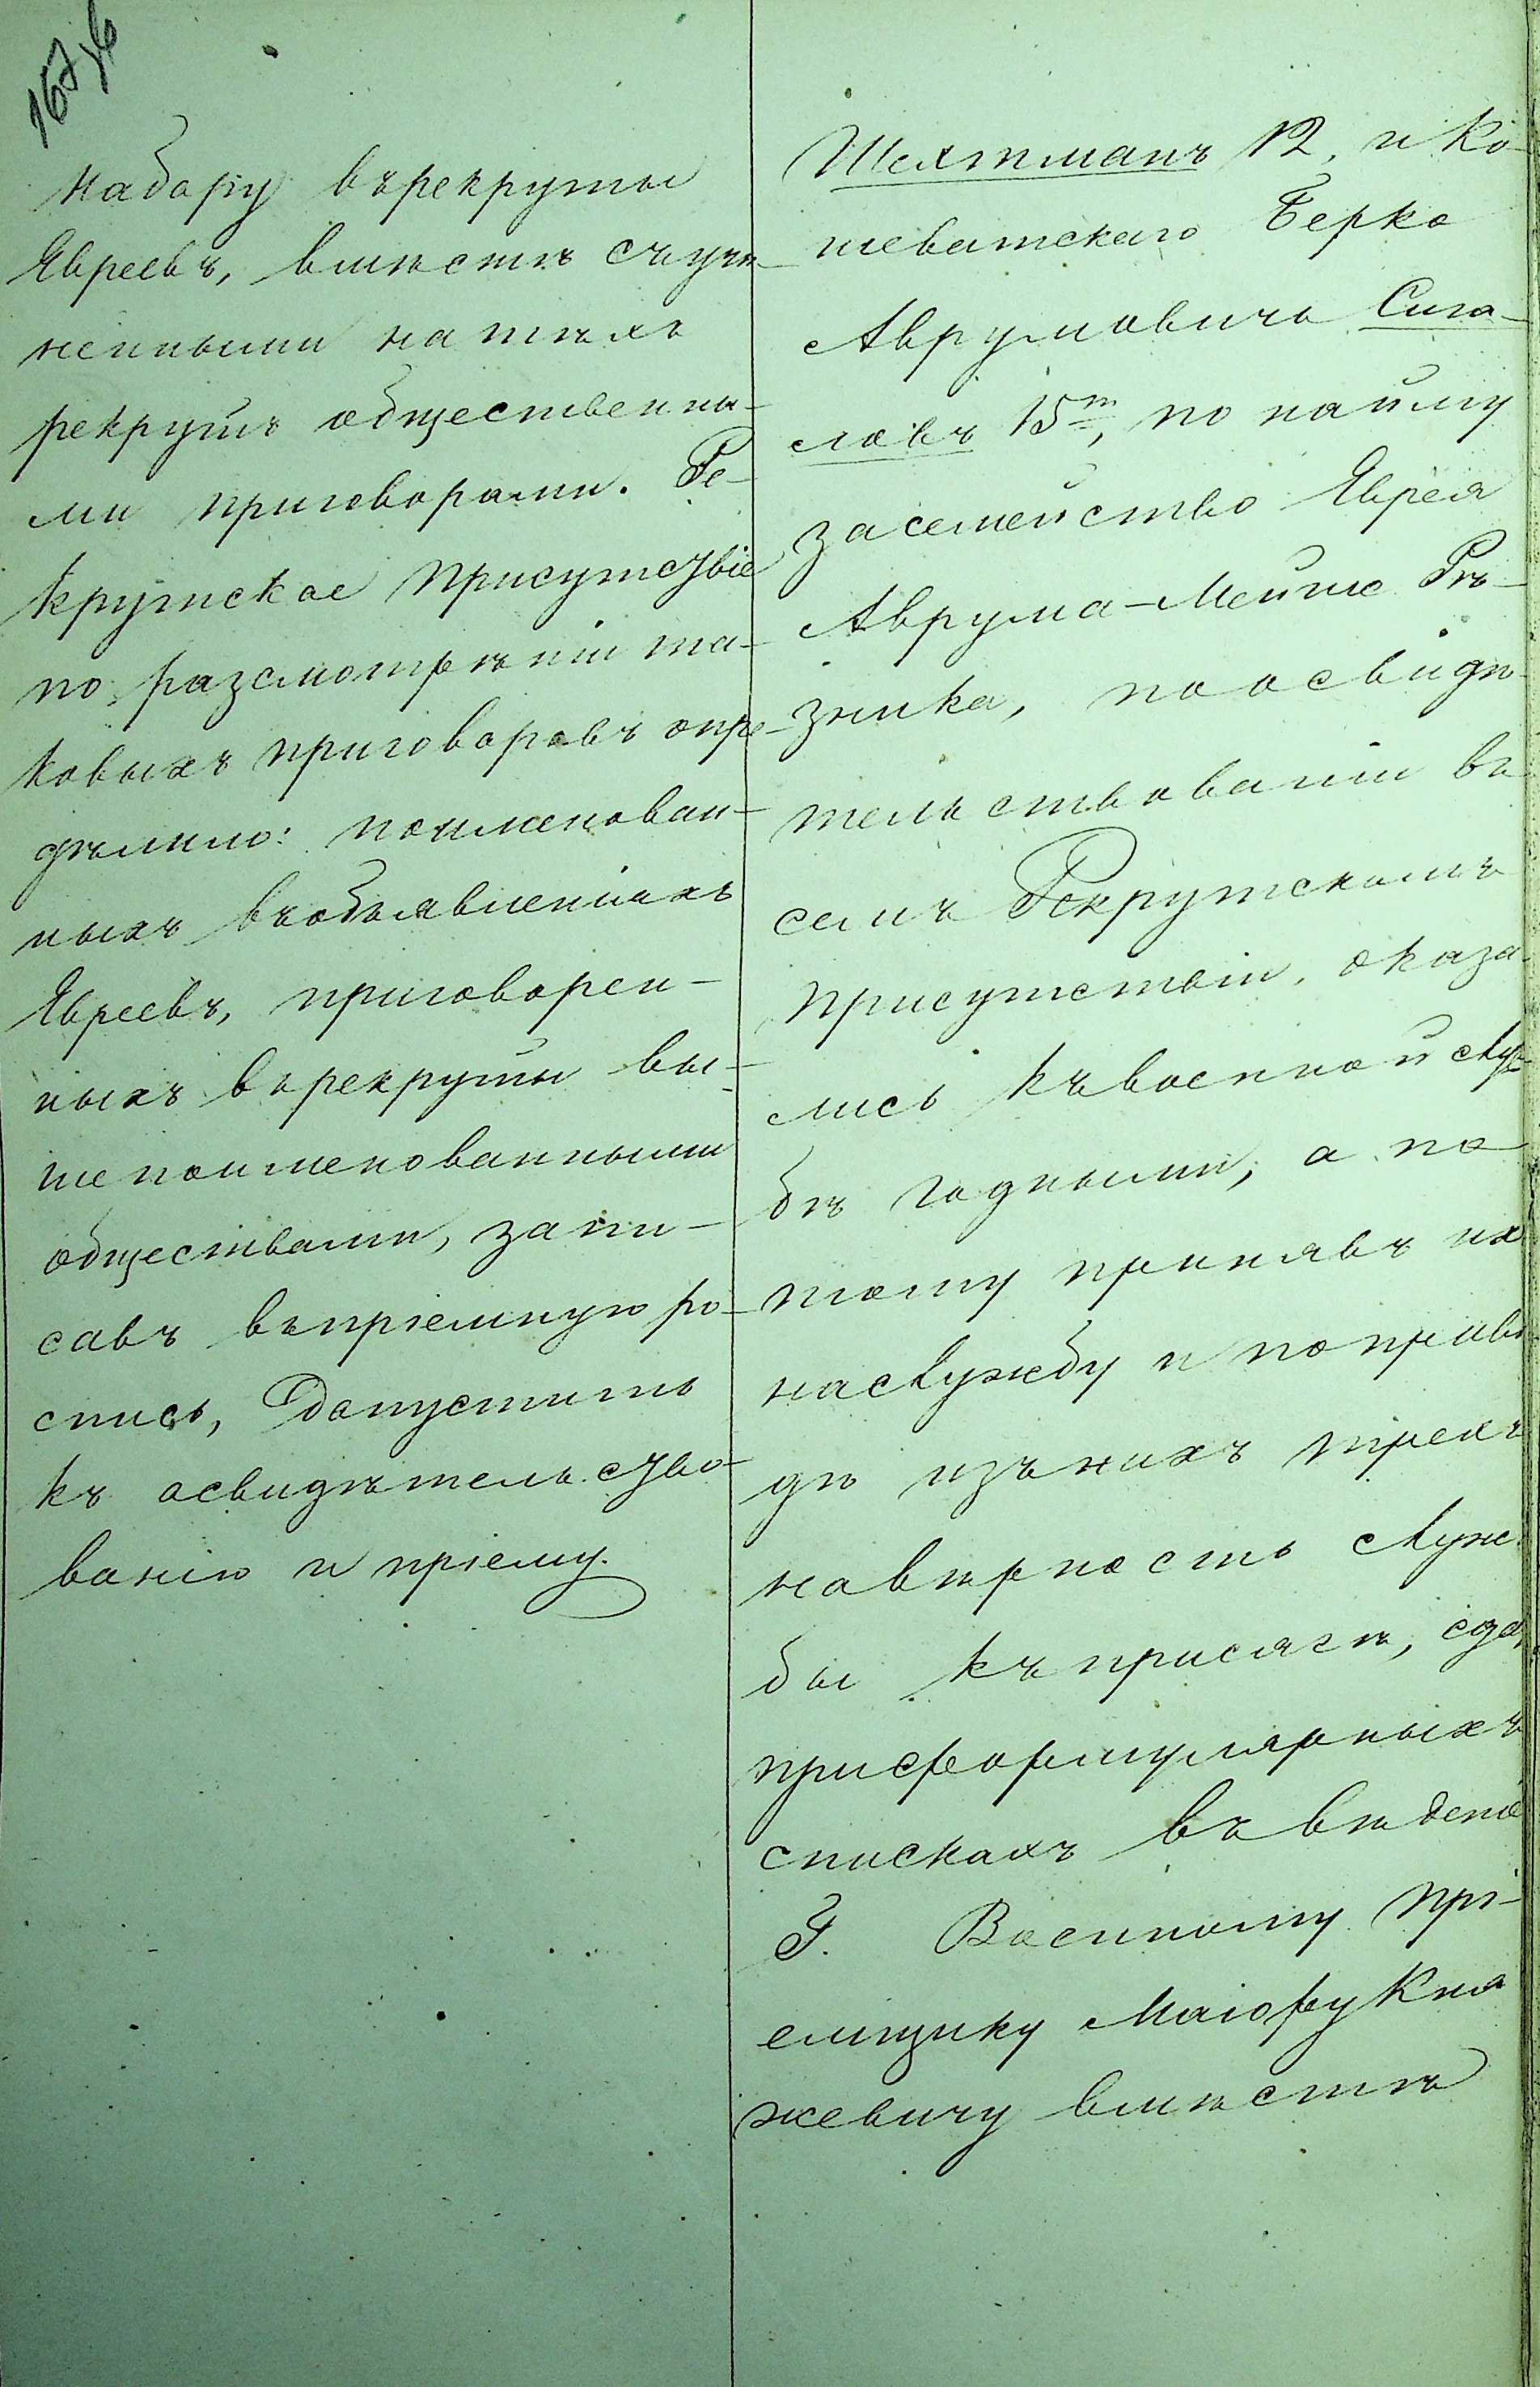 набору въ рекруты
Евреевъ, вместѣ съ учи-
ненными на тѣхъ
рекрутъ общественны-
ми приговорами. Ре-
крутское Присутствіе
по разсмотрѣніи та-
ковыхъ приговоровъ опре-
дѣлило: поименован-
ныхъ въ объявленіяхъ
Евреевъ, приговорен-
ныхъ въ рекруты вы-
шепоименованными
обществами, запи-
савъ въ пріемную ро-
спись, допустить
къ освидѣтельство-
ванію и пріему.
Шехтманъ 12, и Ко-
шеватскаго Берко
Аврумовичъ Сига-
ловъ 15т, по найму
за семейство Еврея
Аврума-Мейше Рѣ-
зника, по освидѣ-
тельствованіи въ
семъ Рекрутскомъ
Присутствіи, оказа-
лись къ военной служ-
бѣ годными, а по
тому принявъ их
на службу и по приво
дѣ изъ нихъ трехъ
на вѣрность служ
бы къ присягѣ, сда
при формулярныхъ
спискахъ въ вѣденіе
Г. Военному Прі-
емщику Маіору Кня
жевичу вмѣстѣ